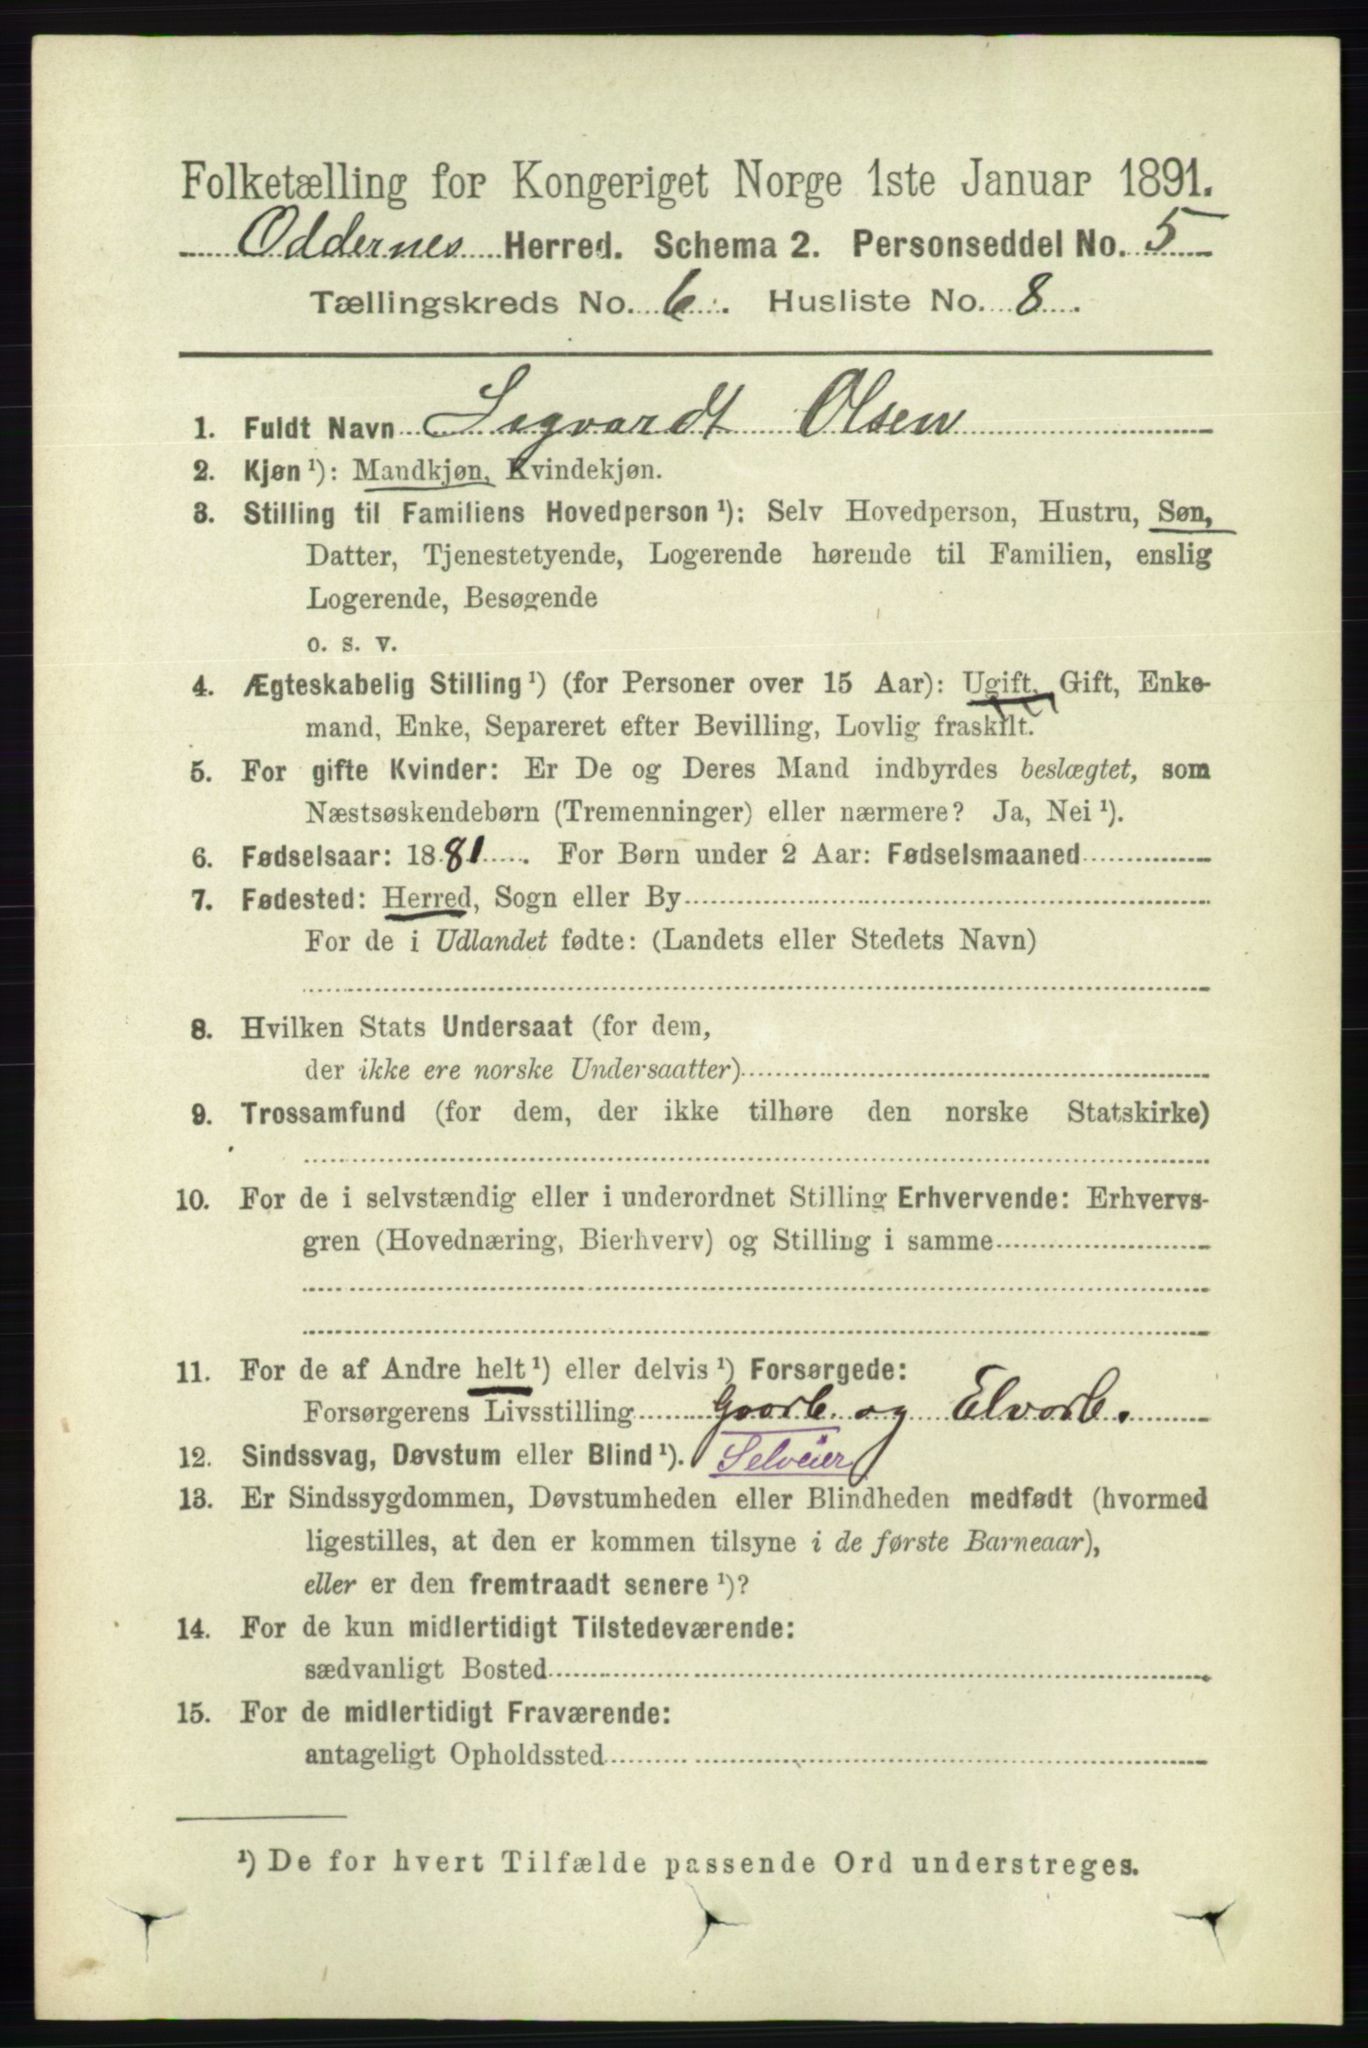 Folketælling for Kongeriget Norge 1ste Januar 1891.
Oddernes Herred. Schema 2. Personseddel No. 5
Tællingskreds No. 6. Husliste No. 8.
1. Fuldt Navn Sigvardt Olsen
2. Kjøn ¹): Mandkjøn, Kvindekjøn.
3. Stilling til Familiens Hovedperson ¹): Selv Hovedperson, Hustru, Søn,
Datter, Tjenestetyende, Logerende hørende til Familien, enslig
Logerende, Besøgende
o. s. v.
4. Ægteskabelig Stilling ¹) (for Personer over 15 Aar): Ugift, Gift, Enke-
mand, Enke, Separeret efter Bevilling, Lovlig fraskilt.
5. For gifte Kvinder: Er De og Deres Mand indbyrdes beslægtet, som
Næstsøskendebørn (Tremenninger) eller nærmere? Ja, Nei ¹).
6. Fødselsaar: 1881. For Børn under 2 Aar: Fødselsmaaned
7. Fødested: Herred, Sogn eller By
For de i Udlandet fødte: (Landets eller Stedets Navn)
8. Hvilken Stats Undersaat (for dem,
der ikke ere norske Undersaatter)
9. Trossamfund (for dem, der ikke tilhøre den norske Statskirke)
10. For de i selvstændig eller i underordnet Stilling Erhvervende: Erhvervs-
gren (Hovednæring, Bierhverv) og Stilling i samme
11. For de af Andre helt ¹) eller delvis ¹) Forsørgede:
Forsørgerens Livsstilling Gaarb. og Elvarb.
12. Sindssvag, Døvstum eller Blind ¹). Selveier
13. Er Sindssygdommen, Døvstumheden eller Blindheden medfødt (hvormed
ligestilles, at den er kommen tilsyne i de første Barneaar),
eller er den fremtraadt senere ¹)?
14. For de kun midlertidigt Tilstedeværende:
sædvanligt Bosted
15. For de midlertidigt Fraværende:
antageligt Opholdssted
¹) De for hvert Tilfælde passende Ord understreges.